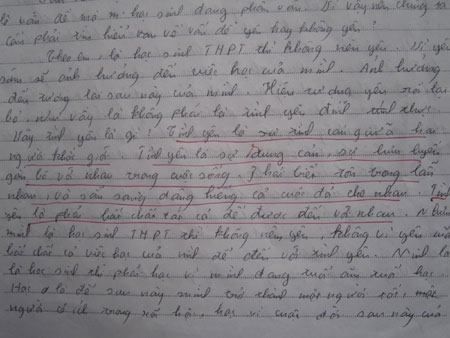 là vấn đề mà m học sinh đang phân vân. Vì vậy nên chúng ta
cần phải tìm hiểu xem về vấn đề yêu hay không yêu ?
Theo em, là học sinh THPT thì không nên yêu. Vì yêu
sớm sẽ ảnh hưởng đến việc học của mình. Ảnh hưởng
đến tương lai sau này của mình. Hiện tượng yêu rồi lại
bỏ, như vậy là không phải là tình yêu đích thực.
Vậy tình yêu là gì ? Tình yêu là sự tình cảm giữa hai
người khác giới. Tình yêu là sự dung cảm, sự lưu luyến
gắn bó với nhau trong cuộc sống. phải biết tôn trọng lẫn
nhau, và sẵn sàng dâng hiến cả cuộc đời cho nhau. Tình
yêu là phải bất chấp tất cả để được đến với nhau. Nhưng
mình là học sinh THPT thì không nên yêu, không vì yêu mà
bất chấp cả việc học của mình để đến với tình yêu. Mình là
là học sinh thì phải học vì mình đang tuổi ăn tuổi học.
Học là để sau này mình trở thành một người tốt, một
người có ích trong xã hội, học vì cuộc đời sau này của